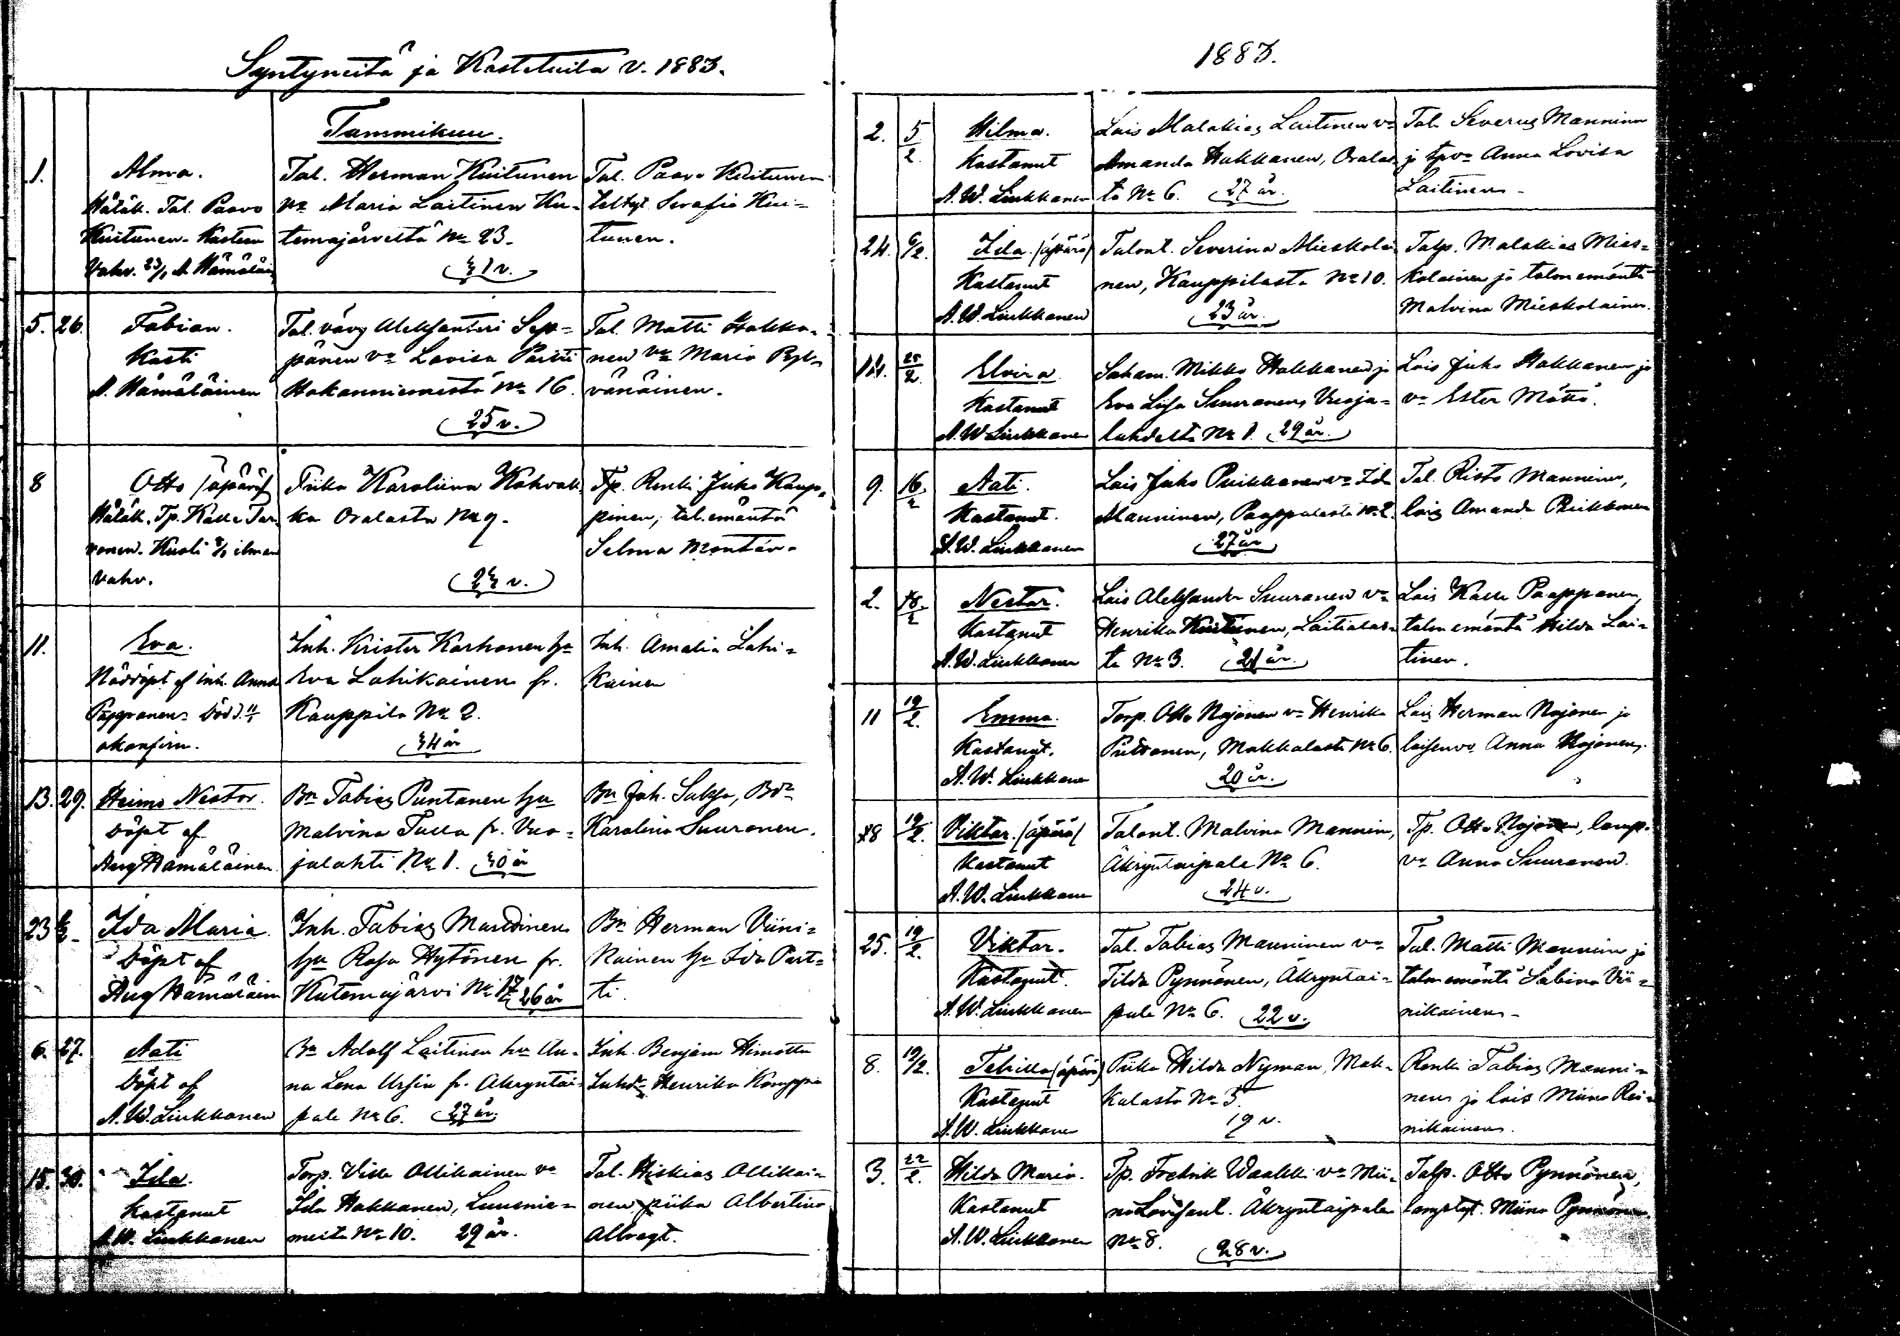 Syntyneitä ja Kastetuita v. 1883.
Tammikuu.
1.
Alma.
Hätäk. Tal. Paavo
Kuitunen. Kasteen
Vahv. 23/1 A. Hämäläin
Tal. Herman Kuitunen
vo Maria Laitinen Ku-
temajärveltä No 23.
31 v.
Tal. Paavo Kuitunen
Serafia Kui-
tunen.
5. 26.
Fabian.
Kasti
A. Hämäläinen
Tal. vävy Aleksanteri Sep-
pänen vo Lovisa Partti
Hokanniemestä No 16.
25 v.
Tal. Matti Hokka-
nen vo Maria
vänäinen.
8
Otto (äpärä)
Hätäk. Tp. Kalle Tar-
vonen. Kasti ilman
vahv.
Piika Karoliina Kohvak-
ka Oralasta No 9.
Tp. Renki Juho Kaup-
pinen, tal. emäntä
Selma Montár-
11.
Eva.
Nöddöpt af inh. Anna
Pappanen. Död d. 11/1
okonfirm.
Inh. Krister Korhonen hu
Eva Lahikainen fr.
Kauppila No 2.
34 år
Inh. Amalia Lahi-
kainen
13. 29.
Heimo Nestor.
Döpt af
Aug Hämäläinen.
Bn Tobias Puntanen hu
Malvina Tulla fr. Vuo-
jalahti No 1. 30 år
Bn Joh. Suksa, Bda
Karolina Suuronen.
23
Ida Maria.
Döpt af
Aug Hämäläin
Inh. Tobias Marttinen
hu Rosa Hytönen fr.
Kutemajärvi No 17 26 år
Bn Herman Viini-
kainen hu Ida Part-
ti.
6. 27.
Aati
Döpt af
A. W. Linkkonen
Bn Adolf Laitinen hu An-
na Lena Ursin fr. Äkryntai-
pale No 6. 27 år.
Inh. Benjam Himottu
Henrika Kauppi
15. 30.
Ida.
Kastanut
A. W. Linkkonen
Torp. Ville Ollikainen vo
Ida Hokkanen, Luusnie-
meltä No 10. 29 år.
Tal. Hiskias Ollikai-
nen piika Albertina
Albregt.
1883.
2. 5/2
Hilma.
Kastanut
A. W. Linkkonen
Lois Malakias Laitinen vo
Amanda Hokkanen, Oralas-
ta No 6. 27 år.
Tal. Severus Manninen
ja tpvo Anna Lovisa
Laitinen.
24. 6/2.
Ida. (äpärä)
Kastanut
A. W. Linkkonen
Talont. Severina Mieskolai-
nen, Kauppilasta No 10.
23 år.
Talp. Malakias Mies-
kolainen ja talon emäntä
Malvina Mieskolainen.
14. 25/2.
Elvira
Kastanut
A. W Linkkonen
Saham. Mikko Hokkanen ja
Eva Liisa Suuronen, Vuoja-
lahdelta No 1. 29 år.
Lois Juho Hokkanen ja
vo Ester Mättö.
9. 16/2
Aati.
Kastanut.
A. W. Linkkonen
Lois Juho Puikkonen vo Ida
Manninen, Paappalasta No 2.
27 år
Tal. Risto Manninen,
lois Amanda Puikkonen
2. 18/2
Nestor.
Kastanut
A. W. Linkkonen
Lois Aleksander Suuronen vo
Henrika Kuitunen, Laitialas-
ta No 3. 21 år.
Lois Kalle Paappanen,
talon emäntä Hilda Lai-
tinen.
11 19/2.
Emma.
Kastanut.
A. W. Linkkonen
Torp. Otto Nojonen vo Henrika
Puttonen, Makkolasta No 6.
20 år.
Lois Herman Nojonen ja
loisenvo Anna Nojonen.
28 19/2.
Viktor. (äpärä)
Kastanut
A. W. Linkkonen
Talont. Malvina Mannin,
Äkryntaipale No 6.
24 v.
Tp. Otto Nojonen, lamp-
vo Anna Suuronen.
25. 19/2.
Viktor.
Kastanut.
A. W. Linkkonen
Tal. Tobias Manninen vo
Tilda Pynnönen, Äkryntai-
pale No 6. 22 v.
Tal. Matti Manninen ja
talon emäntä Sabina Vii-
nikainen.
8. 19/2.
Tekilla (äpärä)
Kastanut
A. W. Linkkonen
Piika Hilda Nyman, Mak-
kolasta No 5.
19 v.
Renki Tobias Manni-
nen ja lois Miina Rei-
nikainen.
3. 22/2.
Hilda Maria.
Kastanut
A. W. Linkkonen
Tp. Fredrik Waalikk vo Mii-
na Äkryntaipale
No 8. 28 v.
Talp. Otto Pynnönen,
Miina Pynnönen.